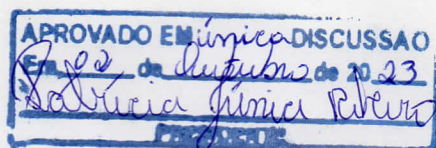 APROVADO EM única DISCUSSAO
Em 02 de Outubro de 2023
Patrícia Júnia Ribeiro